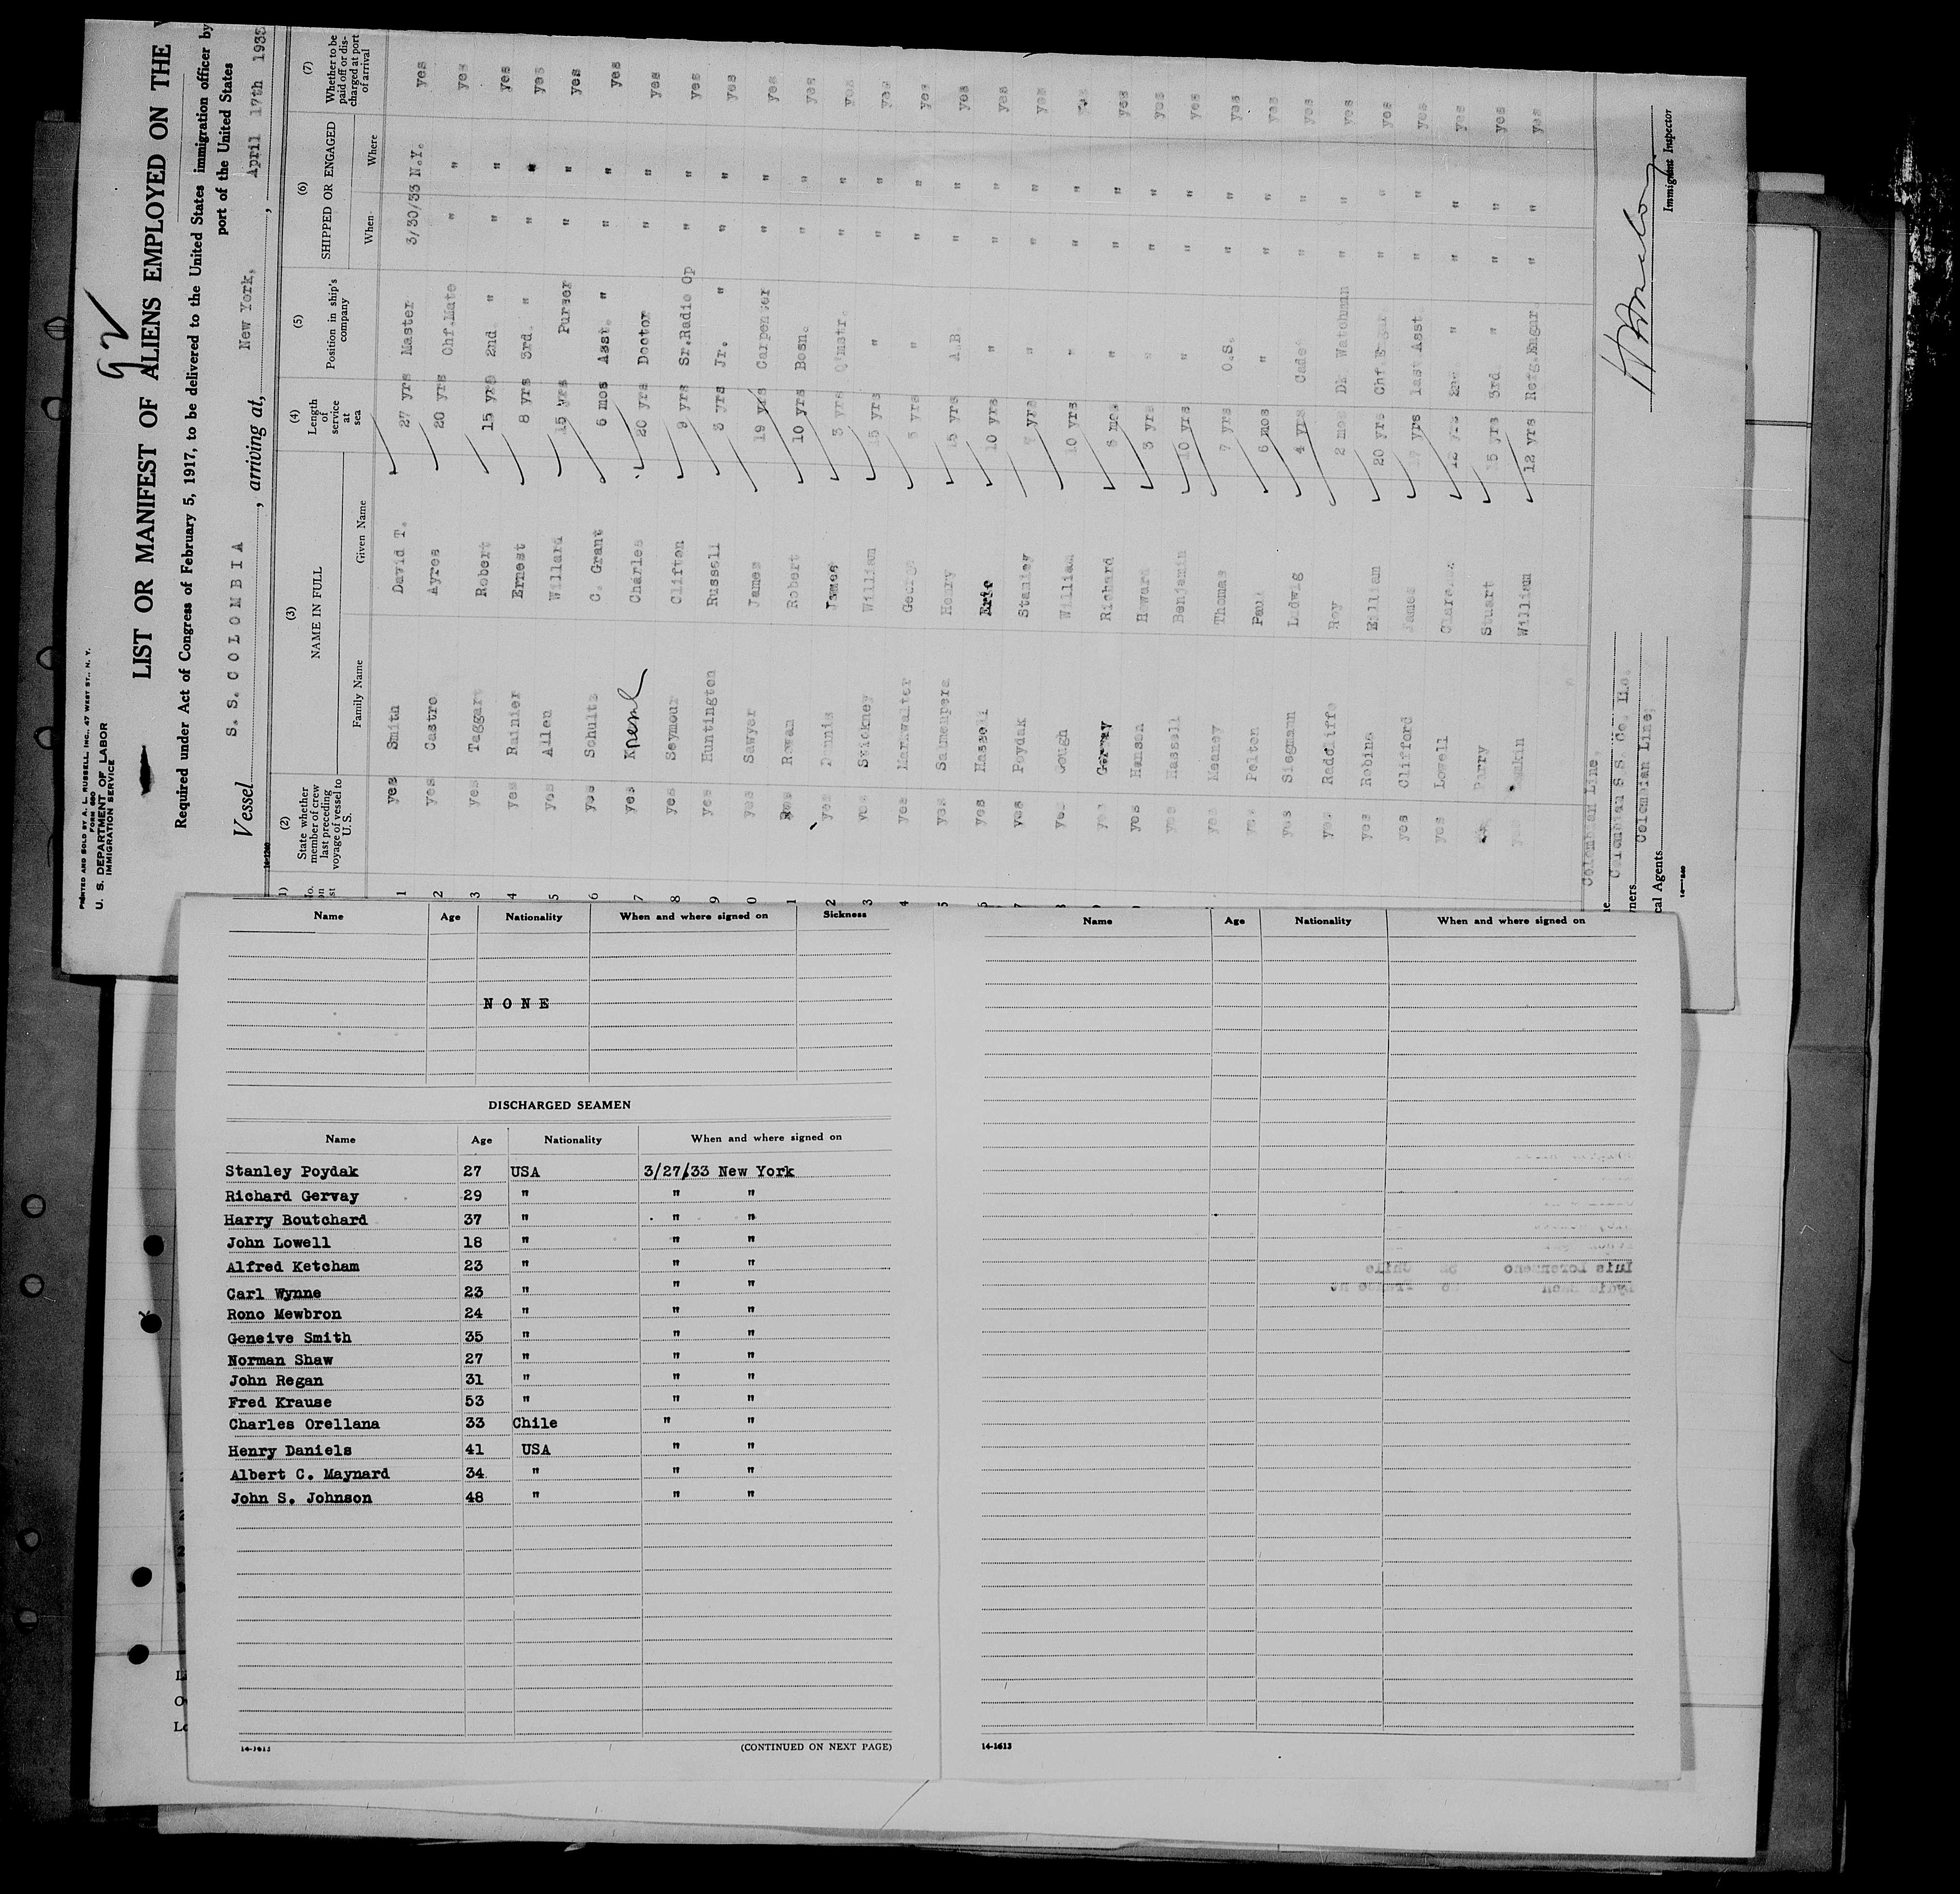 PRINTED AND SOLD BY A. L. RUSSELL, INC., 47 WEST ST., N. Y.
FORM 680
U. S. DEPARTMENT OF LABOR
IMMIGRATION SERVICE
92
LIST OR MANIFEST OF ALIENS EMPLOYED ON THE
Required under Act of Congress of February 5, 1917, to be delivered to the United States immigration officer by
port of the United States
Vessel S. S. COLOMBIA, arriving at, New York, April 17th 193
(2) State whether member of crew last preceding voyage of vessel to U.S.
(3) NAME IN FULL
Family Name Given Name
(4) Length of service at sea
(5) Position in ship's company
(6) SHIPPED OR ENGAGED
When Where
(7) Whether to be paid off or discharged at port of arrival
1 yes Smith David T. 27 yrs Master 3/30/33 N.Y. yes
2 yes Castro Ayres 20 yrs Chf.Mate " " yes
3 yes Taggart Robert 15 yrs 2nd " " " yes
4 yes Rainier Ernest 8 yrs 3rd. " " " yes
5 yes Allen Willard 15 yrs Purser " " yes
6 yes Schultz C. Grant 6 mos Asst. " " " yes
7 yes Kreml Charles 20 yrs Doctor " " yes
8 yes Seymour Clifton 9 yrs Sr.Radio Op " " yes
9 yes Huntington Russell 3 yrs Jr. " " " yes
0 yes Sawyer James 19 yrs Carpenter " " yes
1 Rowan Robert 10 yrs Bosn. " " yes
2 yes Dennis James 3 yrs Q'mstr. " " yes
3 yes Stickney William 15 yrs " " " yes
4 yes George " " " yes
5 yes Henry 15 yrs A.B " " yes
yes Hassell Eric 10 yrs " " " yes
yes Poydak Stanley yrs " " " yes
yes Gough William 10 yrs " " " yes
yes Gervay Richard 6 mos " " " yes
yes Hansen Howard 3 yrs " " " yes
yes Hassell Benjamin 10 yrs " " " yes
yes Meaney Thomas 7 yrs O.S. " " yes
yes Pelton Paul 6 mos " " " yes
yes Siegman Ludwig 4 yrs Cadet " " yes
yes Radcliffe Roy 2 mos Watchman " " yes
yes Robins William 20 yrs Chf Engnr " " yes
yes Clifford James yrs Asst " " yes
yes Lowell Clarence 12 yrs 2nd " " " yes
Stuart 15 yrs 3rd " " " yes
William 12 yrs Refg.Engnr. " " yes
Colombian Line,
Colombian S S. Co. Inc.
Colombian Line,
Immigrant Inspector
Name Age Nationality When and where signed on Sickness
NONE
DISCHARGED SEAMEN
Name Age Nationality When and where signed on
Stanley Poydak 27 USA 3/27/33 New York
Richard Gervay 29 " " "
Harry Boutchard 37 " " "
John Lowell 18 " " "
Alfred Ketcham 23 " " "
Carl Wynne 23 " " "
Rono Mewbron 24 " " "
Geneive Smith 35 " " "
Norman Shaw 27 " " "
John Regan 31 " " "
Fred Krause 53 " " "
Charles Orellana 33 Chile " "
Henry Daniels 41 USA " "
Albert C. Maynard 34 " " "
John S. Johnson 48 " " "
14-1613
(CONTINUED ON NEXT PAGE)
Name Age Nationality When and where signed on
14-1613